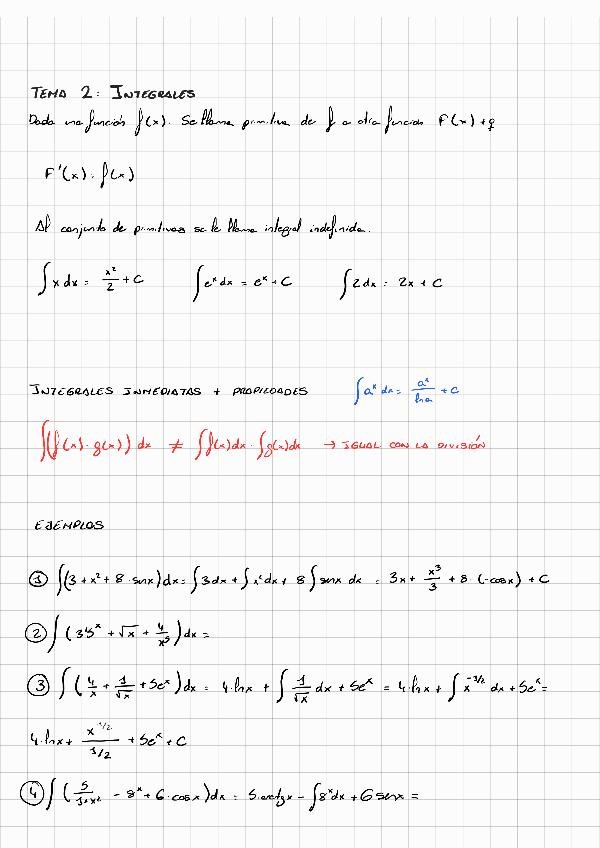 TEMA 2: INTEGRALES
Dada una función f(x). Se llama primitiva de f a otra función F(x) tq
F'(x) = f(x)
Al conjunto de primitivas se le llama integral indefinida.
∫x dx = x²/2 + C ∫eˣ dx = eˣ + C ∫2dx = 2x + C
INTEGRALES INMEDIATAS + PROPIEDADES ∫aˣ dx = aˣ/ln a + C
∫(f(x)·g(x)) dx ≠ ∫f(x)dx · ∫g(x)dx → IGUAL CON LA DIVISIÓN
EJEMPLOS
① ∫(3 + x² + 8·sinx)dx = ∫3dx + ∫x²dx + 8∫sinx dx = 3x + x³/3 + 8·(-cosx) + C
② ∫(35ˣ + √x + 4/x⁵)dx =
③ ∫(4/x + 1/√x + 5eˣ)dx = 4·lnx + ∫1/√x dx + 5eˣ = 4·lnx + ∫x^(-1/2) dx + 5eˣ =
4·lnx + x^(1/2)/(1/2) + 5eˣ + C
④ ∫(5/(1+x²) - 8ˣ + 6·cosx)dx = 5·arctgx - ∫8ˣdx + 6 sinx =